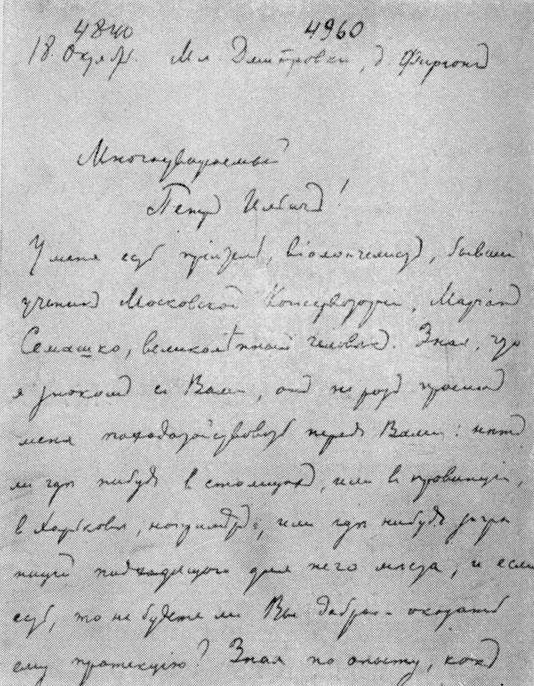 4840 4960
18 Октябр. Мл Дмитровка, д Фирганг
Многоуважаемый
Петр Ильич!
У меня есть приятель, віолончелист, бывший
ученик Московской Консерватории, Маріан
Семашко, великолѣпный человѣк. Зная, что
я знаком с Вами, он не раз просил
меня походатайствовать перед Вами: нет
ли где нибудь в столицах, или в провинціи,
в Харьковѣ, например, или где нибудь загра
ницей подходящего для него мѣста, и если
есть, то не будете ли Вы добры оказать
ему протекцію? Зная по опыту, как